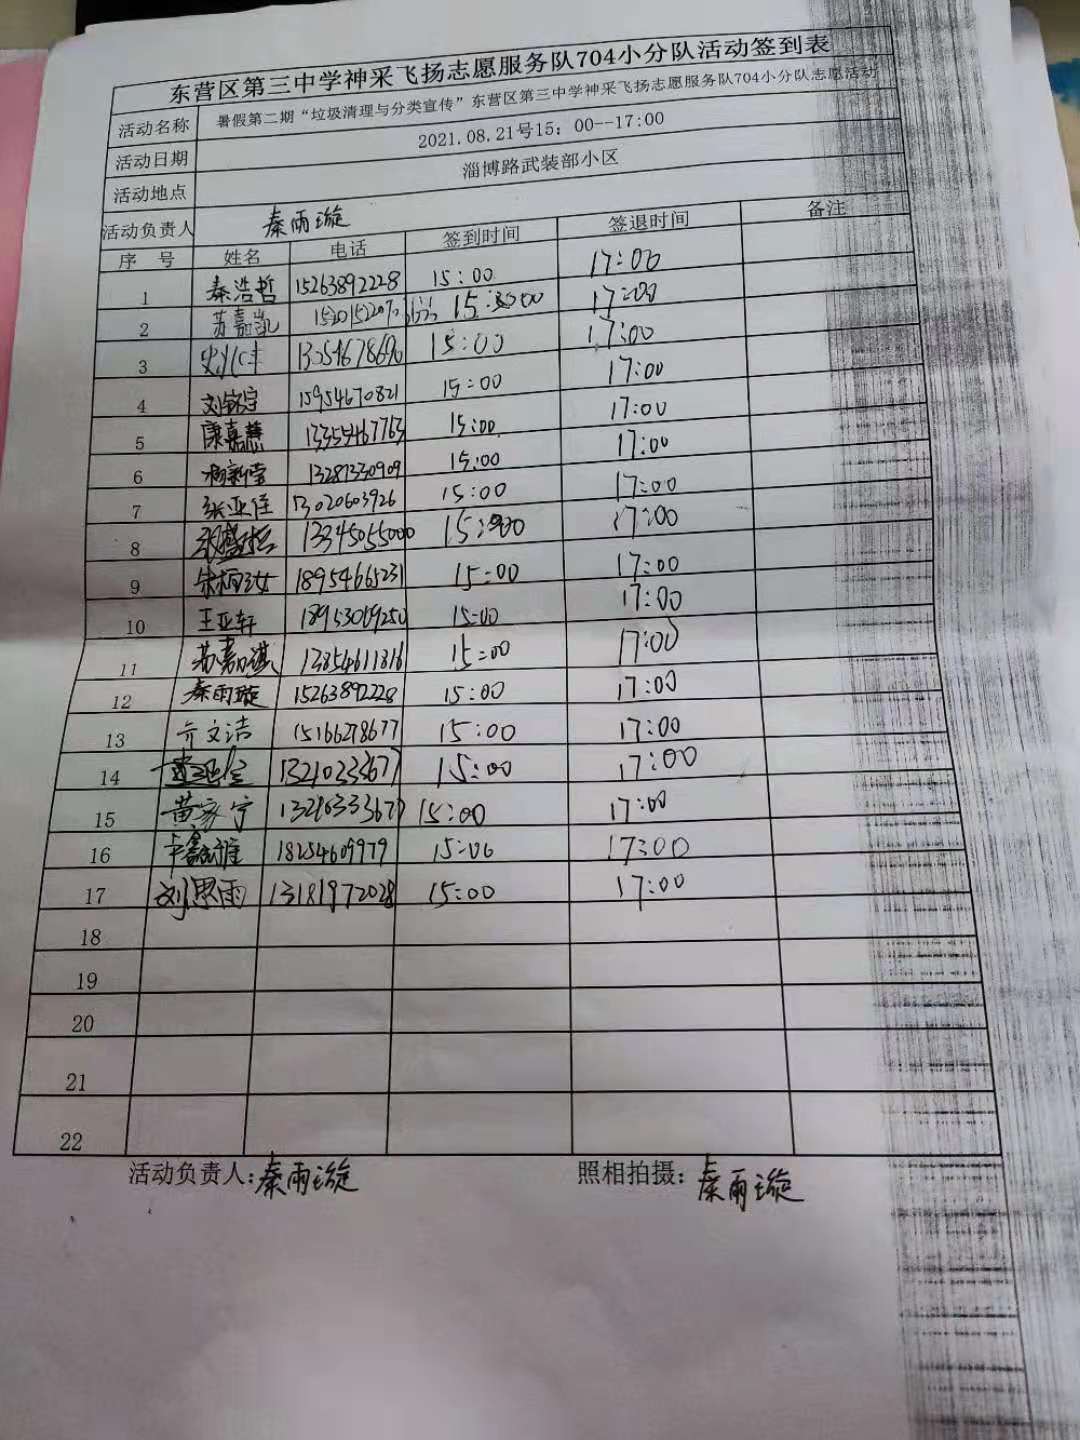 东营区第三中学神采飞扬志愿服务队704小分队活动签到表
活动名称 暑假第二期“垃圾清理与分类宣传”东营区第三中学神采飞扬志愿服务队704小分队志愿活动
活动日期 2021.08.21号15：00--17:00
活动地点 淄博路武装部小区
活动负责人 秦雨璇
序 号 姓名 电话 签到时间 签退时间 备注
1 秦浩哲 15263892228 15:00 17:00
2 苏嘉凯 15:00 17:00
3 15:00 17:00
4 15954670821 15:00 17:00
5 康嘉慧 13355467763 15:00 17:00
6 13287330909 15:00 17:00
7 张亚佳 13020603926 15:00 17:00
8 13345055000 17:00
9 18954665231 15:00 17:00
10 王亚轩 18953069250 15:00 17:00
11 苏嘉祺 13854611816 15:00 17:00
12 秦雨璇 15263892228 15:00 17:00
13 亓文洁 15166278677 15:00 17:00
14 15:00 17:00
15 黄家宁 13210333677 15:00 17:00
16 18254609979 15:00 17:00
17 刘思雨 13181972028 15:00 17:00
18
19
20
21
22
活动负责人:秦雨璇 照相拍摄：秦雨璇